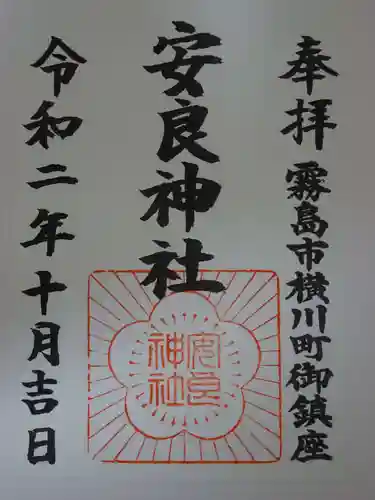 奉拝 霧島市横川町御鎮座
安良神社
令和二年十月吉日
安良
神社